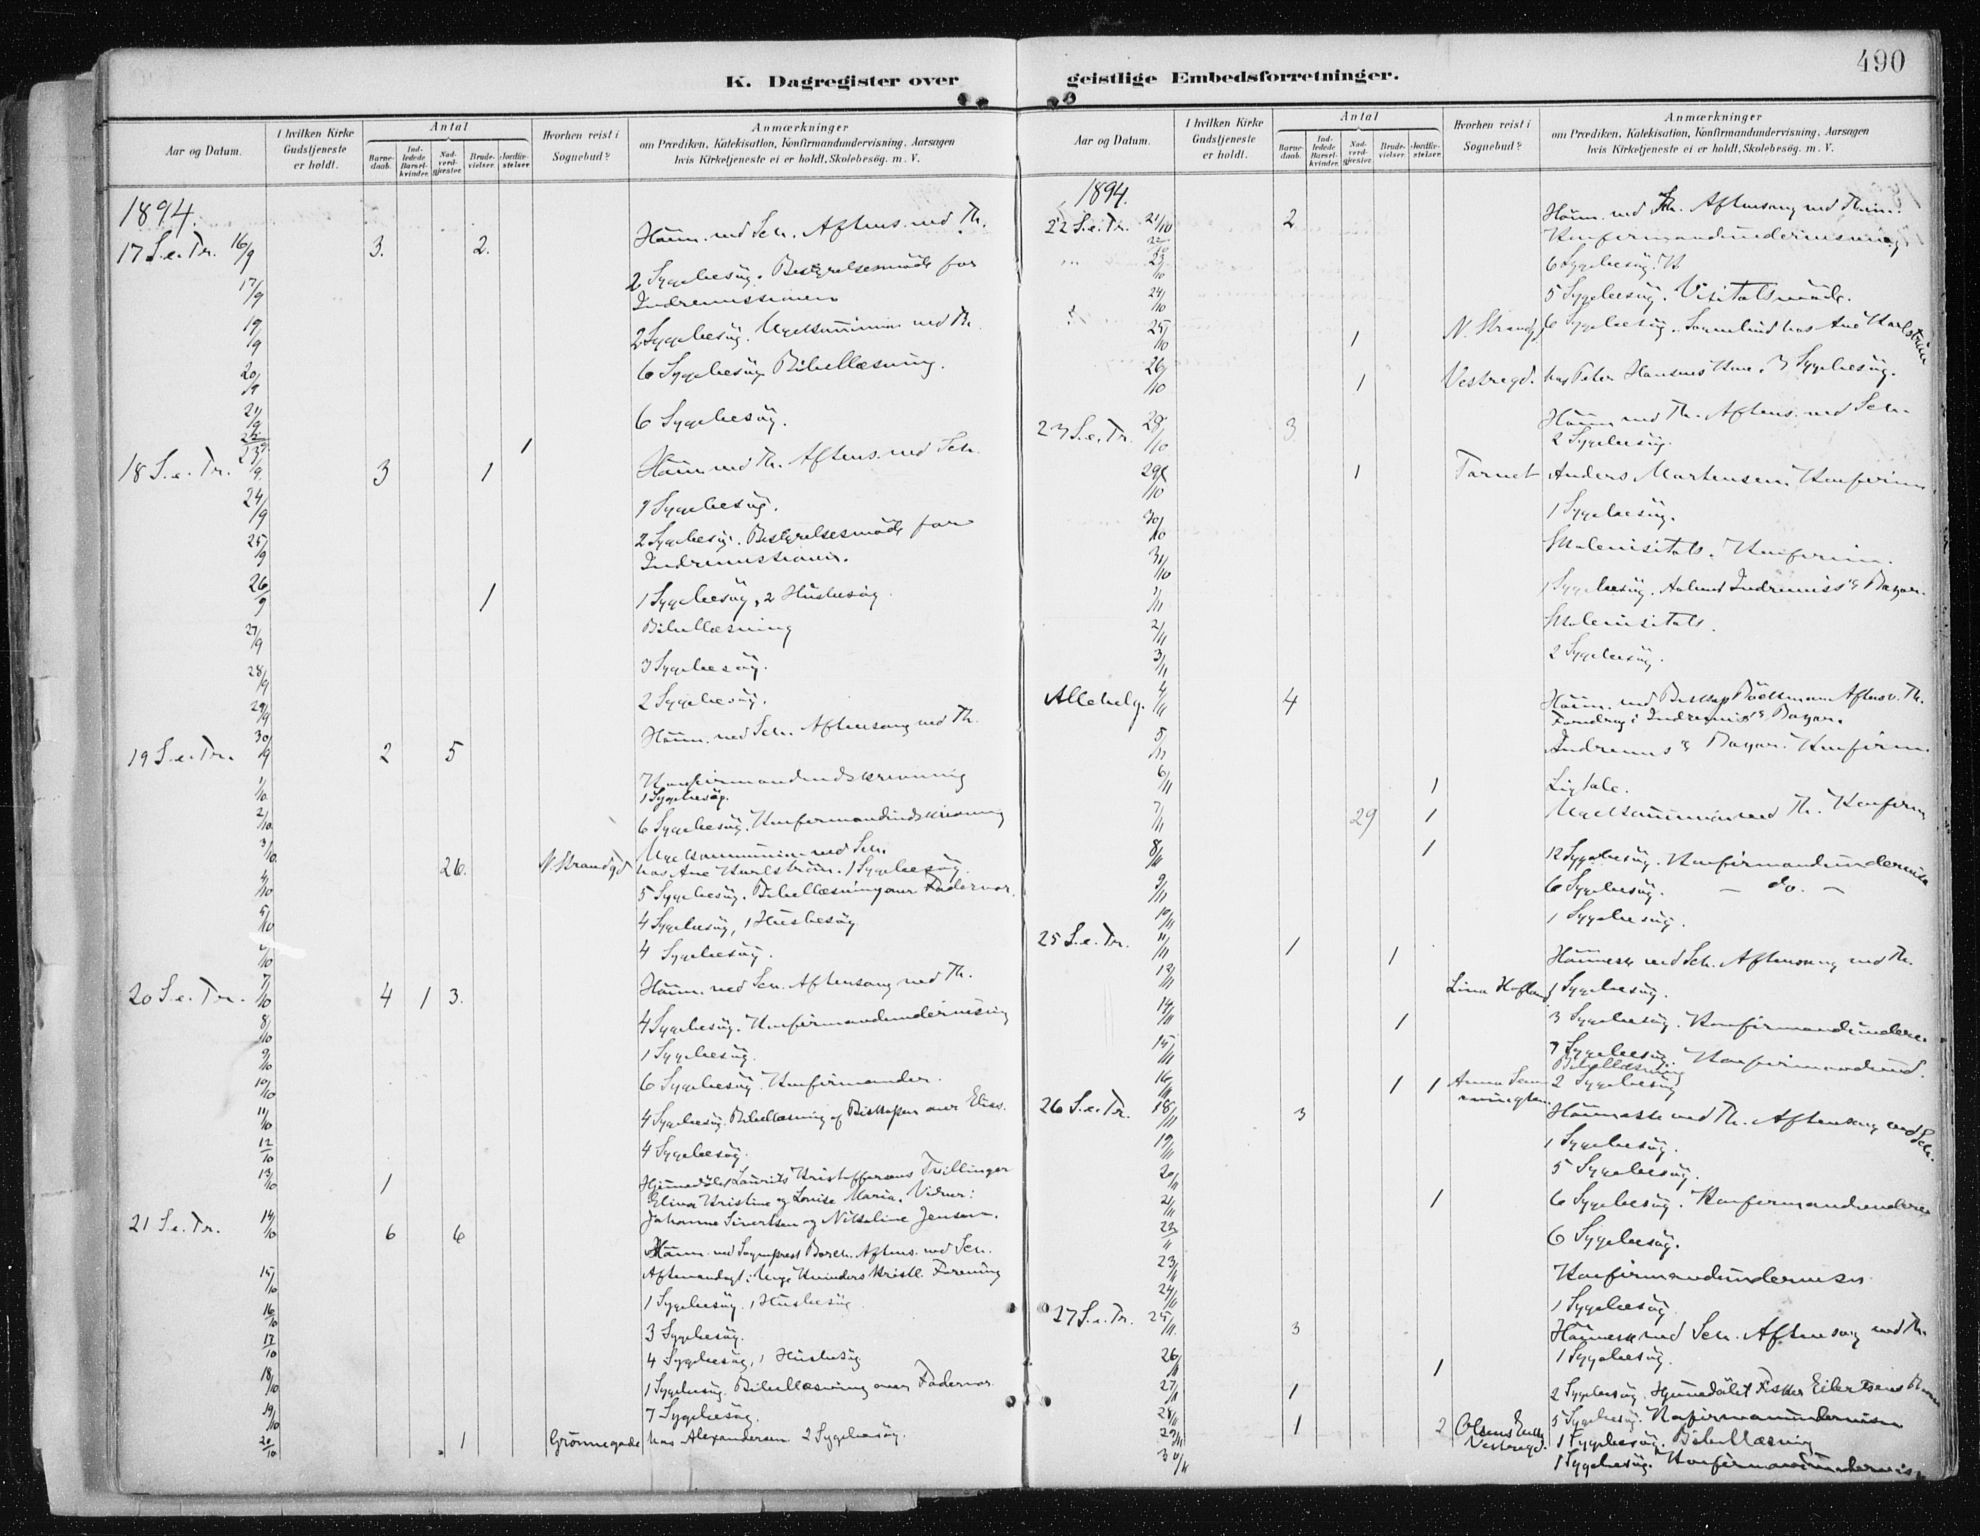 490
K. Dagregister over geistlige Embedsforretninger.
Aar og Datum.
I hvilken Kirke Gudstjeneste er holdt.
Antal
Barnedaab.
Indledede Barselkvinder.
Nadverdgjester.
Brudevielser.
Jordfæstelser.
Hvorhen reist i Sognebud?
Anmærkninger
om Prædiken, Katekisation, Konfirmandundervisning, Aarsagen
hvis Kirketjeneste ei er holdt, Skolebesøg. m. V.
1894.
17 S.e.Tr. 16/9 3. 2. Høim. ved Sch. Aftens. ved Th.
17/9 2 Sygebesøg. Bestyrelsesmøde for
Indremissionen
19/9 2 Sygebesøg. ved Th.
20/9 6 Sygebesøg. Bibellæsning.
21/9 6 Sygebesøg.
22/9 1
18 S.e.Tr. 23/9 3 1 Høim. ved Th. Aftens. ved Sch.
24/9 1 Sygebesøg.
25/9 2 Sygebesøg. Bestyrelsesmøde for
Indremissionen.
26/9 1 1 Sygebesøg, 2 Husbesøg
27/9 Bibellæsning
28/9 3 Sygebesøg.
29/9 2 Sygebesøg.
19 S.e.Tr. 30/9 2 5 Høim. ved Sch. Aftensang ved Th.
1/10 Konfirmandindskrivning
1 Sygebesøg.
2/10 6 Sygebesøg. Konfirmandindskrivning
3/10 26. N. Strandgd ved Sch.
hos Ane Karlstrøm. 1 Sygebesøg.
4/10 5 Sygebesøg. Bibellæsning over Fadervor.
5/10 4 Sygebesøg, 1 Husbesøg
/10 4 Sygebesøg.
20 S.e.Tr. 7/10 4 1 3. Høim. ved Sch. Aftensang ved Th.
8/10 4 Sygebesøg. Konfirmandundervisning
9/10 1 Sygebesøg.
10/10 6 Sygebesøg. Konfirmander.
11/10 4 Sygebesøg. Bibellæsning af Biskopen over
12/10 4 Sygebesøg.
13/10 1 Hjemmedøbt Laurits Kristoffersens Tvillinger
Kristine og Louise Maria. Vidner:
Johanne Sivertsen og Nilseline Jensen.
21 S.e.Tr. 14/10 6 6
Høim. ved Sogneprest Aftens. ved Sch.
Aftenandagt i Unge Kvinders Kristl. Forening
15/10 1 Sygebesøg. 1 Husbesøg
16/10 3 Sygebesøg.
17/10 4 Sygebesøg, 1 Husbesøg
18/10 1 Sygebesøg. Bibellæsning over Fadervor
19/10 7 Sygebesøg.
20/10 1 Grønnegade hos Alexandersen 2 Sygebesøg.
Aar og Datum.
I hvilken Kirke Gudstjeneste er holdt.
Antal
Barnedaab.
Indledede Barselkvinder.
Nadverdgjester.
Brudevielser.
Jordfæstelser.
Hvorhen reist i Sognebud?
Anmærkninger
om Prædiken, Katekisation, Konfirmandundervisning, Aarsagen
hvis Kirketjeneste ei er holdt, Skolebesøg. m. V.
1894.
22 S.e.Tr. 21/10 2 Høim. ved Sch. Aftensang ved Thim.
22/10 Konfirmandundervisning
23/10 6 Sygebesøg.
24/10 5 Sygebesøg. Visitatsmøde.
25/10 1 N. Strandgd 6 Sygebesøg. Sognebud hos Ane Karlstrøm
26/10 1 Vestregd. hos Peter Hansens Kone. 3 Sygebesøg.
23 S.e.Tr. 28/10 3 Høim. ved Th. Aftens. ved Sch.
2 Sygebesøg.
29/10 1 Tornet Anders Mortensen. Konfirm.
30/10 1 Sygebesøg.
31/10 Skolevisitats. Konfirm.
1/11 1 Sygebesøg. Aabnet Indremiss's Bazar.
2/11 Skolevisitats.
3/11 2 Sygebesøg.
Allehelg. 4/11 4 Høim. ved Biskop Bøckman Aftens v. Th.
Foredrag i Indremiss's Bazar.
5/11 Indremis's Bazar. Konfirm.
6/11 1 Ligtale.
7/11 29 1 ved Th. Konfirm
8/11 1 12 Sygebesøg. Konfirmandundervisn
9/11 6 Sygebesøg. — do. —
10/11 1 Sygebesøg.
25 S.e.Tr. 11/11 1 1 Høimesse ved Sch. Aftensang ved Th.
13/11 Lina 1 Sygebesøg.
14/11 1 3 Sygebesøg. Konfirmandunderv
15/11 7 Sygebesøg. Konfirmandund.
Bibellæsning
16/11 1 1 Anna 2 Sygebesøg
26 S.e.Tr. 18/11 3 Høimesse ved Th. Aftensang ved Sch.
19/11 1 Sygebesøg.
20/11 5 Sygebesøg.
21/11 1 6 Sygebesøg. Konfirmandunderv
22/11 6 Sygebesøg.
23/11 Konfirmandundervisn
24/11 1 Sygebesøg
27 S.e.Tr. 25/11 3 Høimesse ved Sch. Aftensang ved Th.
26/11 1 1 Sygebesøg.
27/11 1 2 Sygebesøg. Hjemmedøbt Eilertsens
28/11 5 Sygebesøg. Konfirmandundervisn
29/11 1 2 Olsens Vestregd. 1 Sygebesøg. Bibellæsning
30/11 1 Sygebesøg. Konfirmandundervis